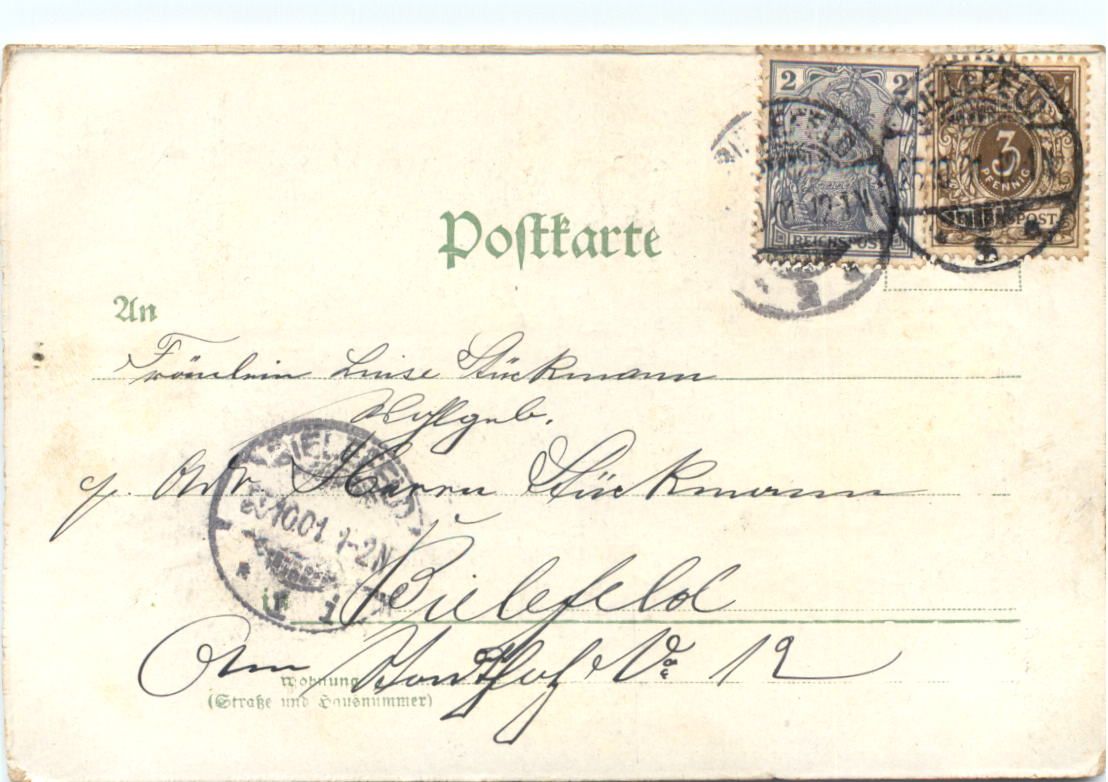 2 2
REICHSPOST
3
PFENNIG
REICHSPOST
BIELEFELD
Postkarte
An
Fräulein Luise Stückmann
Wohlgeb.
Herrn Stückmann
BIELEFELD
10.01 1-2N
in Bielefeld
Am No 12
Wohnung
(Straße und Hausnummer)